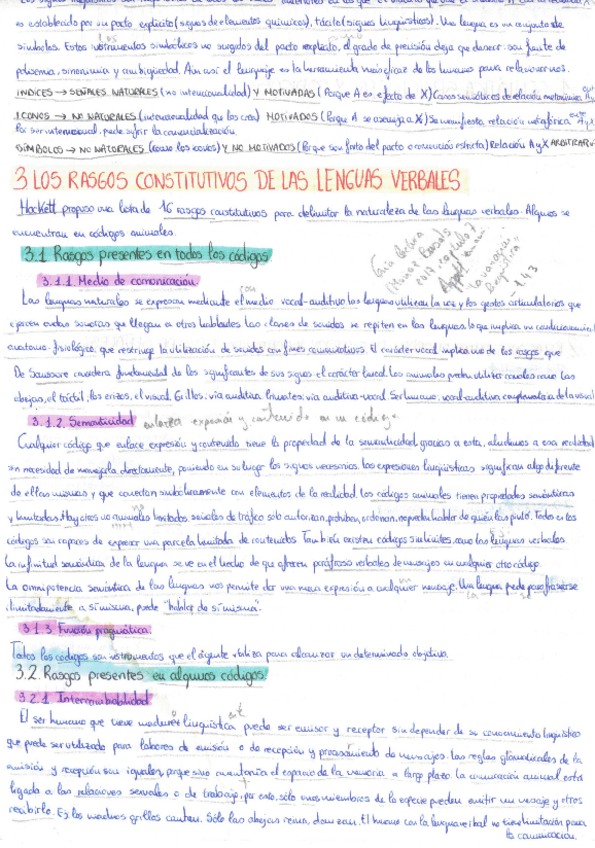 es establecido por su pacto explícito (signos de elementos químicos), tácito (signos lingüísticos). Una lengua es un conjunto de
símbolos. Estos instrumentos simbólicos no surgidos del pacto explícito, el grado de precisión deja que desear: son fuente de
polisemia, sinonimia y ambigüedad. Aún así el lenguaje es la herramienta más eficaz de los humanos para relacionarnos.
INDICES → SEÑALES NATURALES (no intencionalidad) Y MOTIVADAS (Porque A es efecto de X)
ICONOS → NO NATURALES (intencionalidad que los crea) MOTIVADOS (Porque A se asemeja a X) Se manifiesta relación metafórica A y X
Por ser intencional, puede sufrir la comercialización.
SÍMBOLOS → NO NATURALES (como los iconos) Y NO MOTIVADOS (Porque son fruto del pacto o convención) Relación A y X ARBITRARIA
3 LOS RASGOS CONSTITUTIVOS DE LAS LENGUAS VERBALES
Hockett propuso una lista de 16 rasgos constitutivos para delimitar la naturaleza de las lenguas verbales. Algunos se
encuentran en códigos animales.
3.1 Rasgos presentes en todos los códigos
3.1.1. Medio de comunicación
Las lenguas naturales se expresan mediante el medio vocal-auditivo. Las lenguas utilizan la voz y los gestos articulatorios que
ondas sonoras que llegan a otros hablantes. Las clases de sonidos se repiten en las lenguas, lo que implica un condicionamiento
anatomo-fisiológico, que restringe la utilización de sonidos con fines comunicativos. El carácter vocal implica uno de los rasgos que
De Saussure considera fundamental de los significantes de sus signos el carácter lineal. Los animales pueden utilizar canales como las
abejas, el táctil, los erizos, el visual. Grillos: vía auditiva. Primates: vía auditiva-vocal. Ser humano: vocal-auditiva
3.1.2. Semanticidad enlaza expresión y contenido en un código.
Cualquier código que enlace expresión y contenido tiene la propiedad de la semanticidad, gracias a esta, aludimos a una realidad
sin necesidad de manejarla directamente, poniendo en su lugar los signos necesarios. Las expresiones lingüísticas significan algo diferente
de ellas mismas y que conectan simbólicamente con elementos de la realidad. Los códigos animales tienen propiedades semánticas
y limitadas. Hay otros no animales limitados: señales de tráfico solo autorizan, prohíben, ordenan, no pueden hablar de quién las puso. Todos estos
códigos son capaces de expresar una parcela limitada de contenidos. También existen códigos sin límites, como las lenguas verbales.
La infinitud semántica de la lengua se ve en el hecho de que ofrecen paráfrasis verbales de mensajes en cualquier otro código.
La omnipotencia semántica de las lenguas nos permite dar una nueva expresión a cualquier mensaje. Una lengua puede parafrasearse
ilimitadamente a sí misma, puede "hablar de sí misma".
3.1.3. Función pragmática
Todos los códigos son instrumentos que el agente utiliza para alcanzar un determinado objetivo.
3.2. Rasgos presentes en algunos códigos
3.2.1 Intercambiabilidad
El ser humano que tiene madurez lingüística puede ser emisor y receptor sin depender de su conocimiento lingüístico
que puede ser utilizado para labores de emisión o de recepción y procesamiento de mensajes. Las reglas gramaticales de la
emisión y recepción son iguales, porque sino aumentaría el espacio de la memoria a largo plazo. La comunicación animal está
ligada a las relaciones sexuales o de trabajo, por esto, sólo unos miembros de la especie pueden emitir un mensaje y otros
recibirlo. Ej: los machos grillos cantan. Sólo las abejas reina, danzan. El humano con la lengua verbal no tiene limitación para
la comunicación.